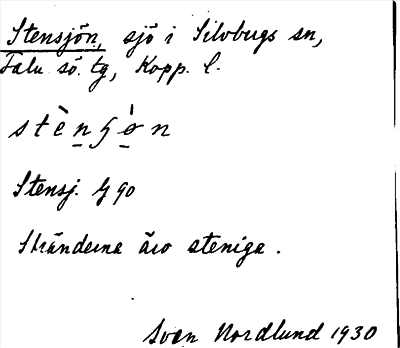 Stensjön, sjö i Silvbergs sn,
Falu sö. tg, Kopp. l.
stènʃø̀n
Stensj. G 90
Stränderna äro steniga.
Sven Nordlund 1930